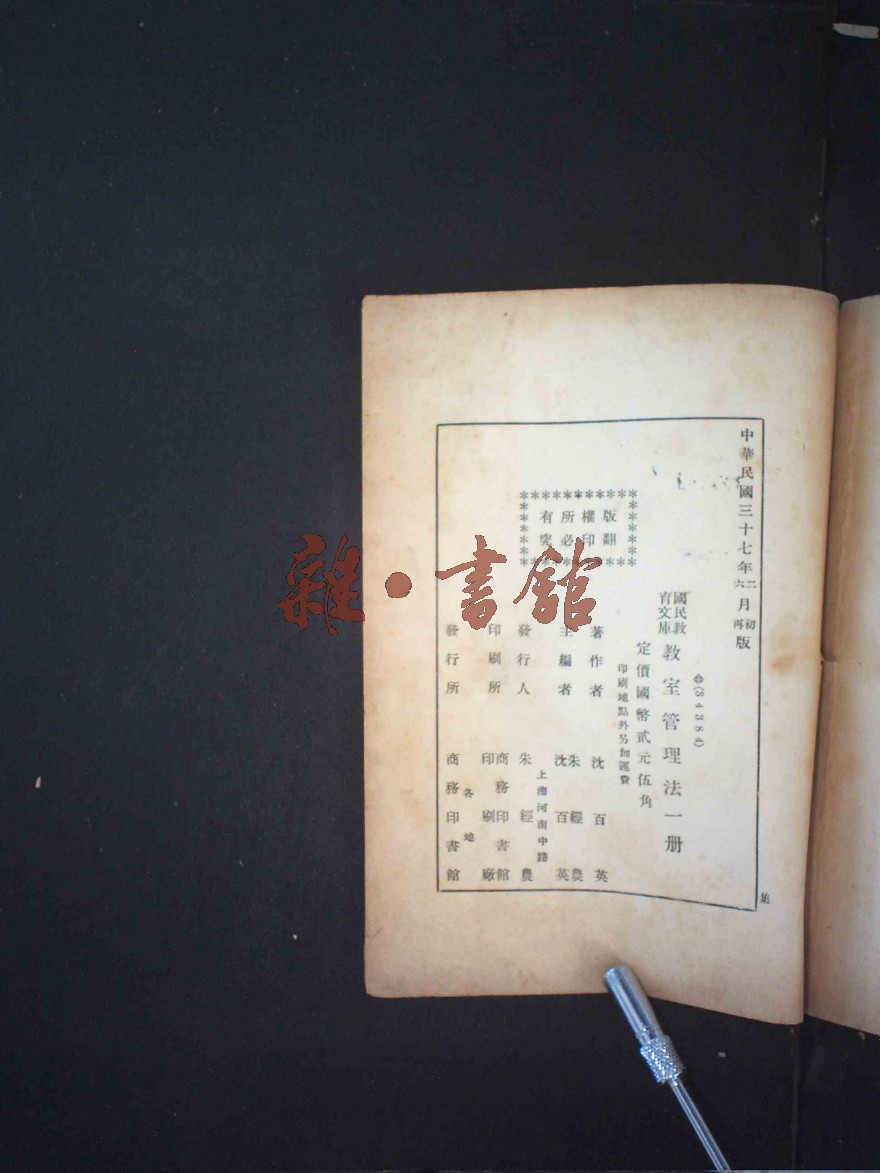 中華民國三十七年二月初版
六月再版
(34384)
國民教育文庫
教室管理法一冊
定價國幣貳元伍角
印刷地點外另加運費
版權所有
翻印必究
著作者 沈百英
主編者 朱經農 沈百英
上海河南中路
發行人 朱經農
印刷所 商務印書館印刷廠
各地
發行所 商務印書館
雜·書館